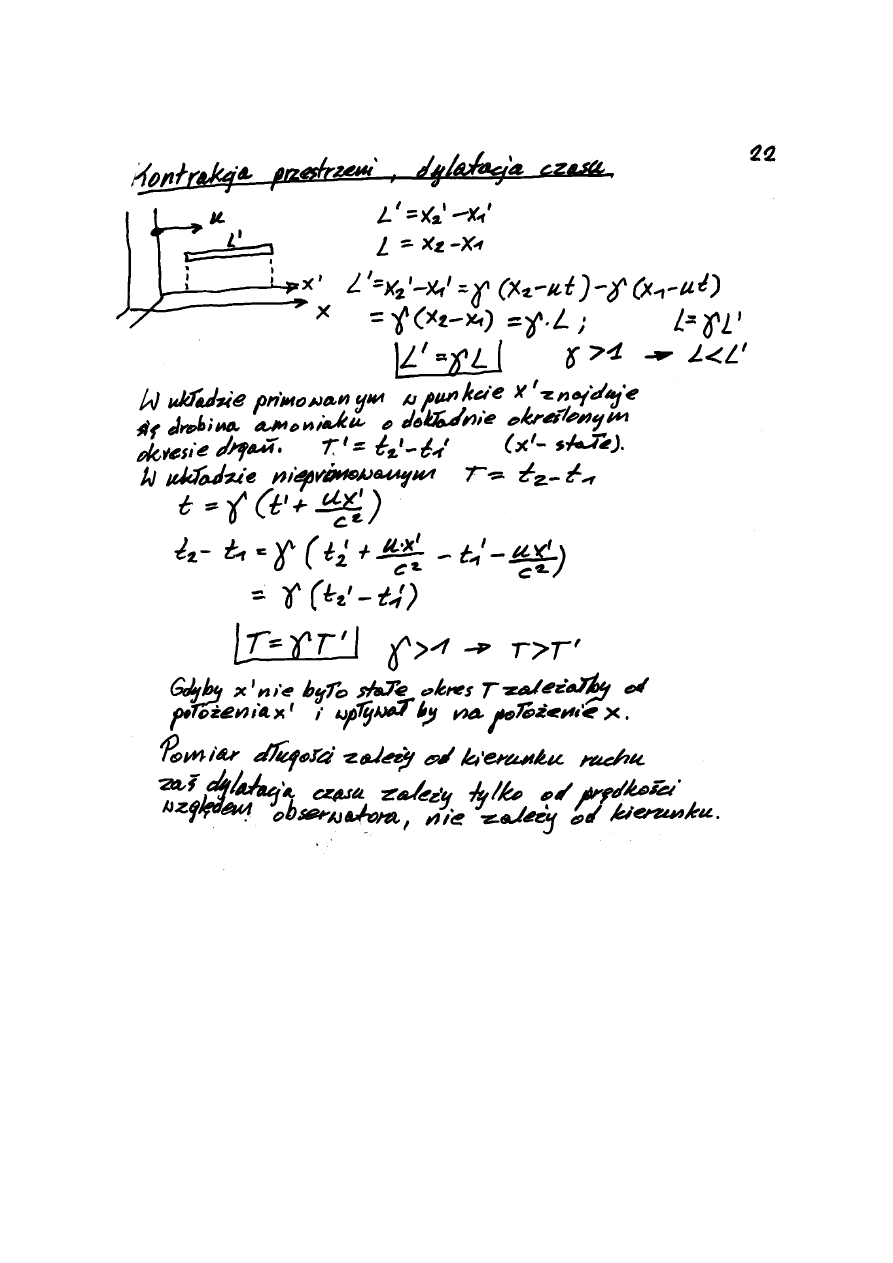 22
Kontrakcja przestrzeni, dylatacja czasu
u
L'
x'
x
L' = x₂' - x₁'
L = x₂ - x₁
L' = x₂' - x₁' = γ (x₂ - ut) - γ (x₁ - ut)
= γ (x₂ - x₁) = γ · L ; L = γ L'
L' = γL γ > 1 → L < L'
W układzie primowanym w punkcie x' znajduje
się drobina amoniaku o dokładnie określonym
okresie drgań. T' = t₂' - t₁' (x' - stałe).
W układzie nieprimowanym T = t₂ - t₁
t = γ (t' + ux'/c²)
t₂ - t₁ = γ (t₂' + u·x'/c² - t₁' - ux'/c²)
= γ (t₂' - t₁')
T = γT' γ > 1 → T > T'
Gdyby x' nie było stałe okres T zależałby od
położenia x' i wpływałby na położenie x.
Pomiar długości zależy od kierunku ruchu
zaś dylatacja czasu zależy tylko od prędkości
względem obserwatora, nie zależy od kierunku.